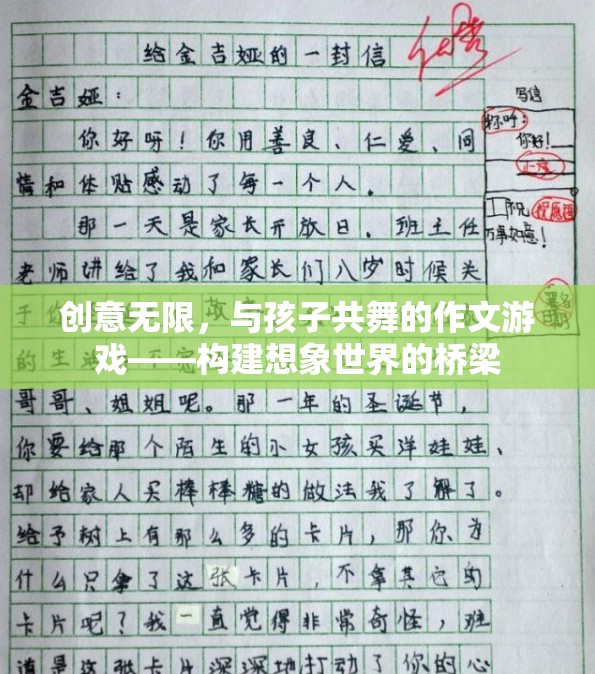 给金吉娅的一封信
金吉娅：
你好呀！你用善良、仁爱、同
情和体贴感动了每一个人。
那一天是家长开放日。班主任
老师讲给了我和家长们八岁时候关
于你
创意无限，与孩子共舞的作文游
戏——构建想象世界的桥梁
的生活
哥哥、姐姐呢。那一年的圣诞节，
你要给那个陌生的小女孩买洋娃娃、
却给家人买棒棒糖的做法我了解了。
给予树上有那么多的卡片，那你为
什么只拿了这张卡片，不拿其它的
卡片呢？我一直觉得非常奇怪，难
道是这张卡片深深地打动了你的心
写信
称呼：
你好！
正文
祝
祝愿语
万事如意！
署名
日期